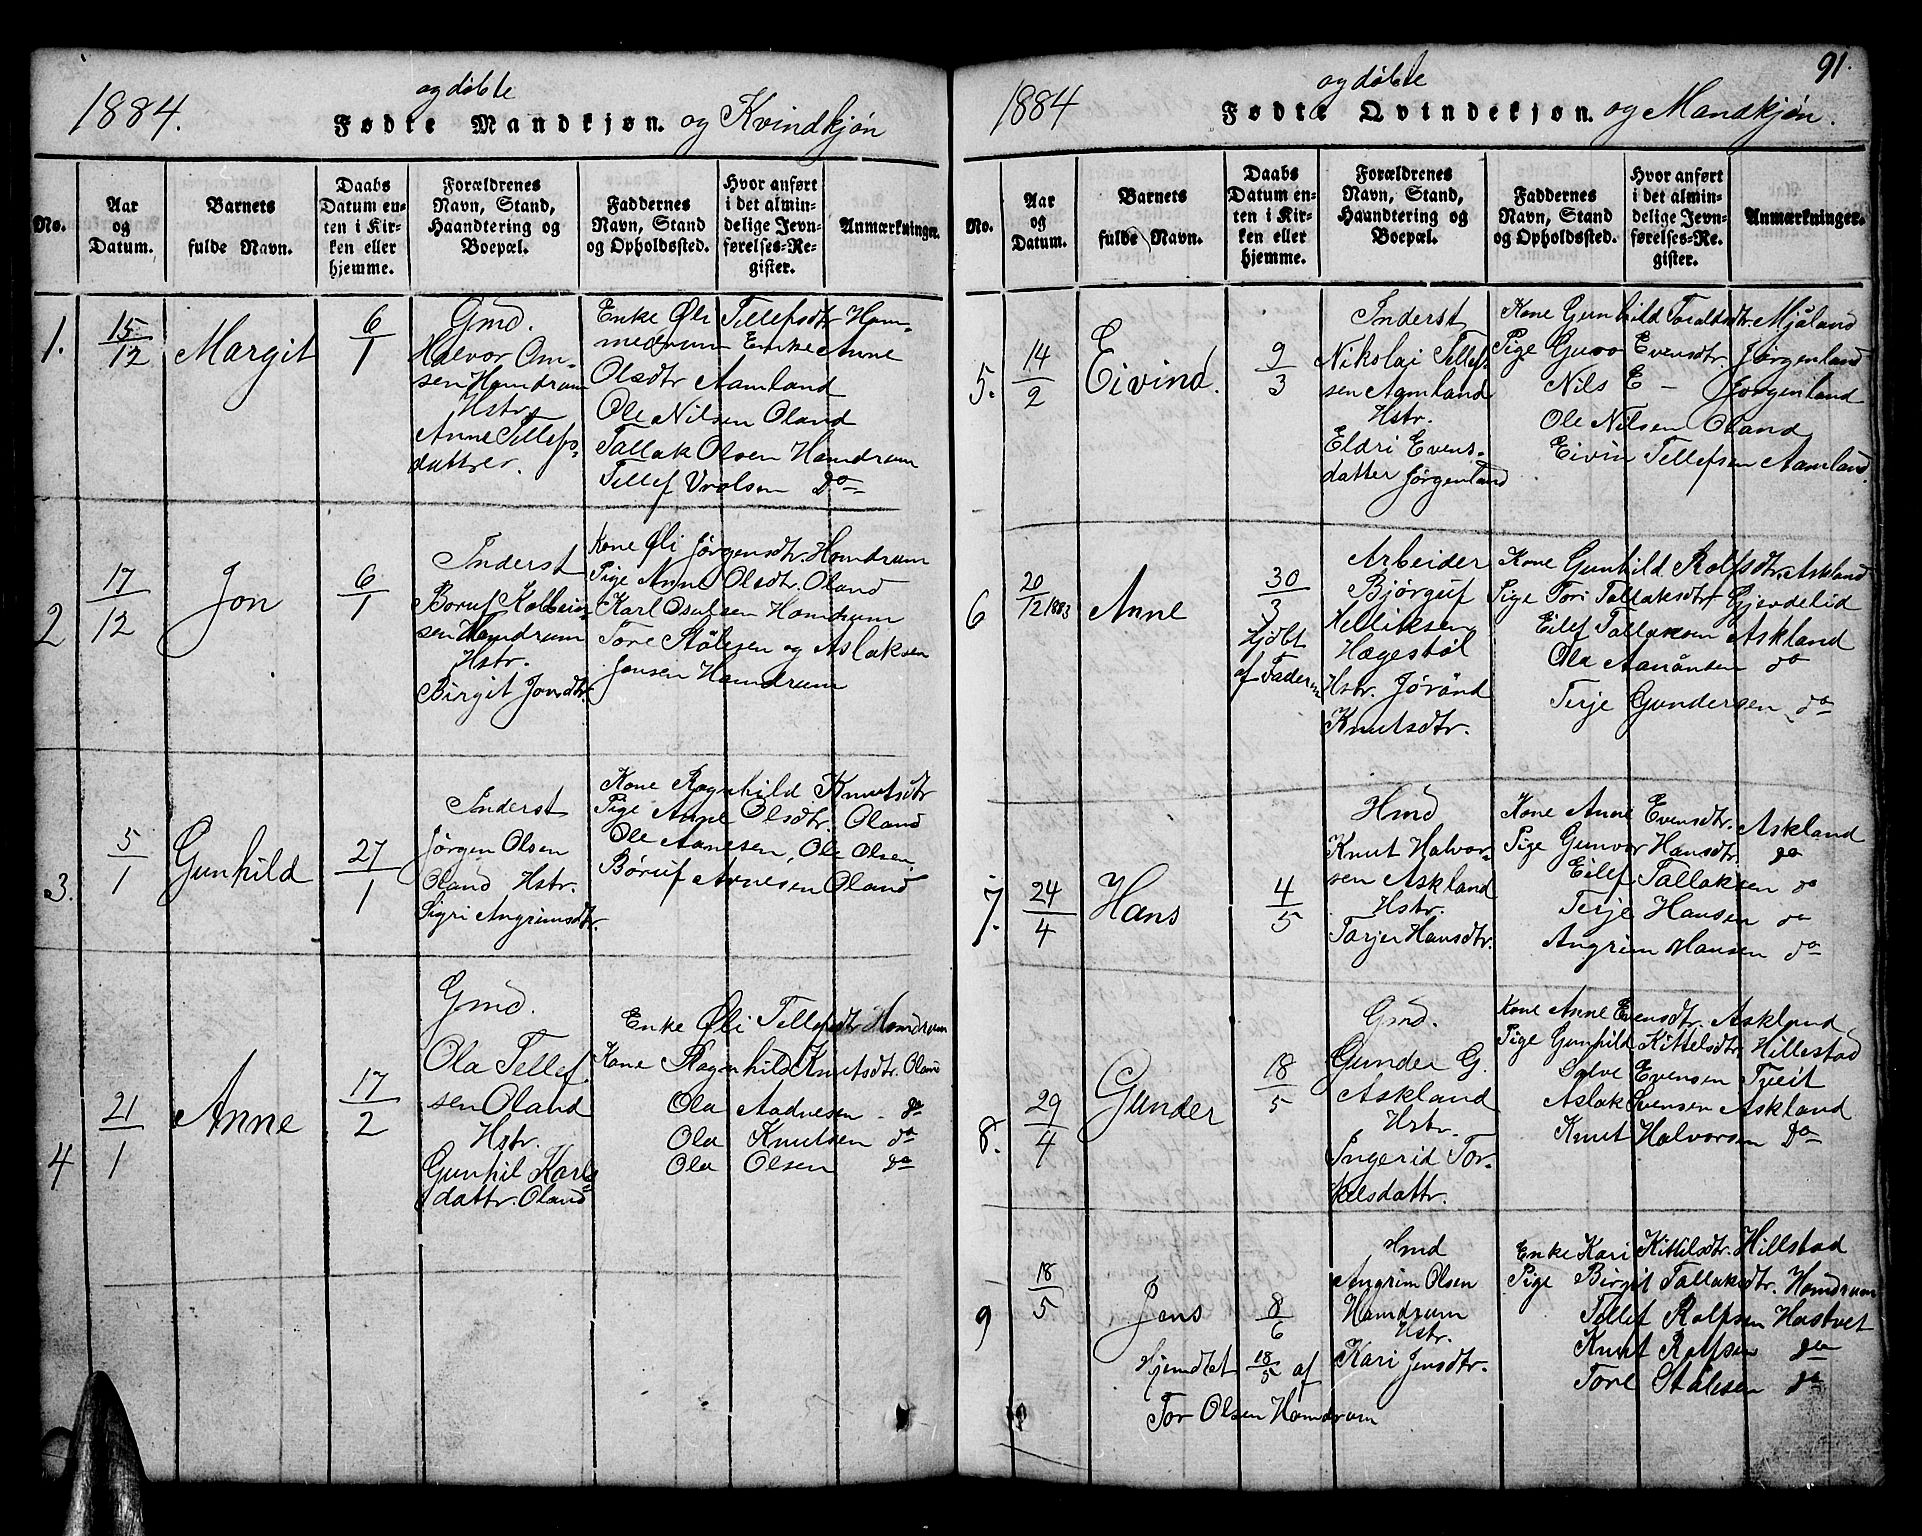 1884.
og döbte
Fødte Mandkjøn. og Kvindkjön
No.
Aar
og
Datum.
Barnets
fulde Navn.
Daabs
Datum en-
ten i Kir-
ken eller
hjemme.
Forældrenes
Navn, Stand,
Haandtering og
Boepæl.
Faddernes
Navn, Stand
og Opholdssted.
Hvor anført
i det almin-
delige Jevn-
førelses-Re-
gister.
Anmærkninger.
1.
15/12
Margit
6/1
Gmd.
Halvor Om-
sen Homdrum
Hstr.
Anne Tellefs-
datter.
Enke Øli Tellefsdtr Hom-
medrum Enke Anne
Olsdtr Aamland
Ole Nilsen Oland
Tallak Olsen Homdrum
Tellef Vrolsen Do
2
17/12
Jon
6/1
Inderst
Boruf Kolbein-
sen Homdrum
Hstr.
Birgit Jonsdtr.
Kone Øli Jørgensdtr. Homdrum
Pige Anne Olsdtr. Oland
Karl Osulsen Homdrum
Tore Stålesen og Aslaksen
Jonsen Homdrum
3.
5/1
Gunhild
27/1
Inderst
Jørgen Olsen
Oland Hstr.
Sigri Angrimsdtr.
Kone Ragnhild Knutsdtr
Pige Anne Olsdtr. Oland
Ole Aanesen, Ole Olsen,
Børuf Arnesen Oland
4
21/1
Anne
17/2
Gmd.
Ola Tellef
sen Oland
Hstr.
Gunhil Karls
dattr. Oland
Enke Øli Tellefsdtr Homdrum
Kone Ragnhild Knutsdtr. Oland
Ola Aadnesen do
Ola Knutsen do
Ola Olsen do
91.
1884
og døbte
Fødte Qvindekjøn. og Mandkjön.
No.
Aar
og
Datum.
Barnets
fulde Navn.
Daabs
Datum en-
ten i Kir-
ken eller
hjemme.
Forældrenes
Navn, Stand,
Haandtering og
Boepæl.
Faddernes
Navn, Stand
og Opholdssted.
Hvor anført
i det almin-
delige Jevn-
førelses-Re-
gister.
Anmærkninger.
5.
14/2
Eivind.
9/3
Inderst
Nikolai Tellef-
sen Aamland
Hstr.
Eldri Evens-
datter Jørgenland
Kone Gunhild Toraldsdtr. Mjåland
Pige Guro Evensdtr. Jørgenland
Nils E - Jørgenland
Ole Nilsen Oland
Eivin Tellefsen Aamland.
6
20/12 1883
Anne
30/3
Hjdbt
af Faderen
Arbeider
Bjørguf
Helliksen
Hægestøl
Hstr. Jörånd
Knutsdtr.
Kone Gunhild Rolfsdtr. Askland
Pige Tori Tallaksdtr Gjerdelid
Eilef Tallaksen Askland
Ola Aanånsen do
Terje Gundersen do
7.
24/4
Hans
4/5
Hmd
Knut Halvor-
sen Askland
Hstr.
Torjer Hansdtr.
Kone Anne Evensdtr. Askland
Pige Gunvor Hansdtr. do
Eilef Tallaksen do
Terje Hansen do
Angrim Hansen do
8.
29/4
Gunder
18/5
Gmd.
Gunder G.
Askland
Hstr.
Ingerid Tor-
kelsdattr.
Kone Anne Evensdtr. Askland
Pige Gunhild Kittelsdtr. Hillestad
Salve Evensen Tveit
Aslak Svensen Askland
Knut Halvorsen Do
9
18/5
Jens
8/6
Hjemdbt 18/5 af
Tor Olsen Homdrum
Hmd
Angrim Olsen
Homdrum
Hstr.
Kari Jensdtr.
Enke Kari Kittilsdtr. Hillstad
Pige Birgit Tallaksdtr. Homdrum
Tellef Rolfsen Hastvet
Knut Rolfsen do
Tore Stålesen do